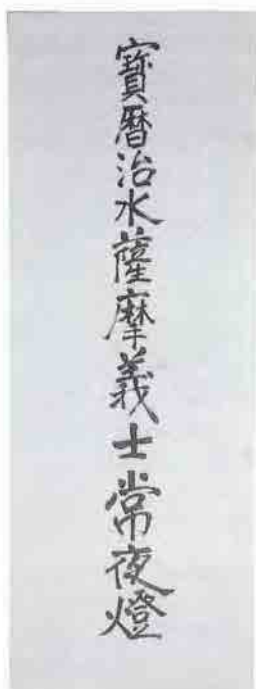 寳暦治水薩摩義士常夜燈